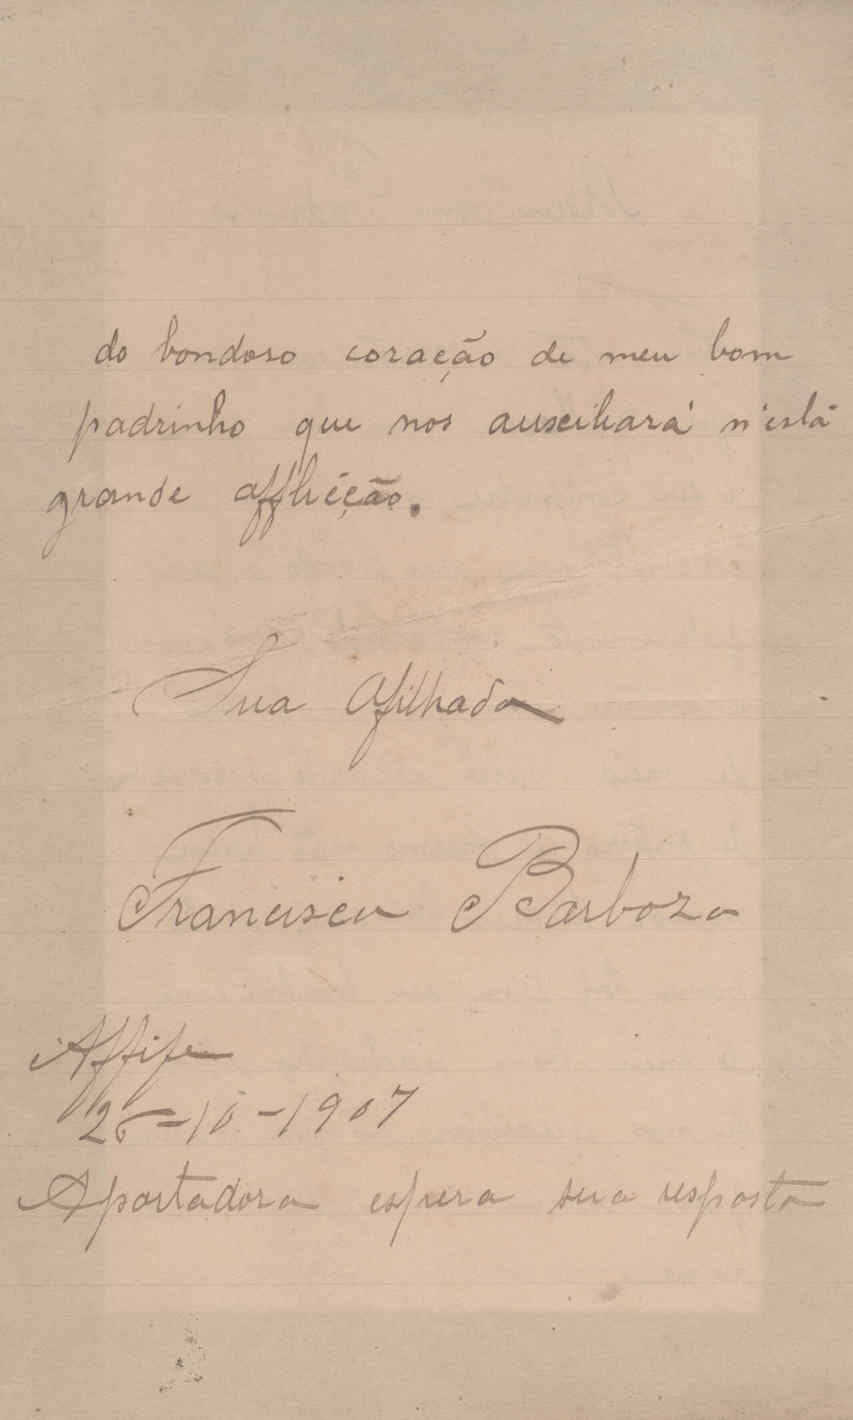 do bondoso coração de meu bom
padrinho que nos auxeiliará n'esta
grande afflicção.
Sua Afilhada
Francisca Barboza
Affife
26-10-1907
A portadora espera sua resposta